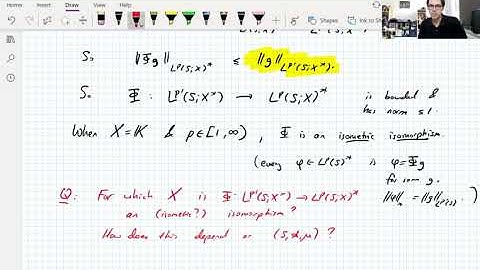 So ‖Φg‖_{L^p(S;X)*} ≤ ‖g‖_{L^{p'}(S;X*)}.
So Φ : L^{p'}(S;X*) → L^p(S;X)* is bounded & has norm ≤ 1.
When X = 𝕂 & p∈[1,∞), Φ is an isometric isomorphism.
(every φ ∈ L^p(S)* is φ = Φg for some g.
‖φ‖ = ‖g‖_{L^{p'}(S)})
Q: For which X is Φ: L^{p'}(S;X*) → L^p(S;X)*
an (isometric?) isomorphism?
How does this depend on (S,𝒜,μ)?